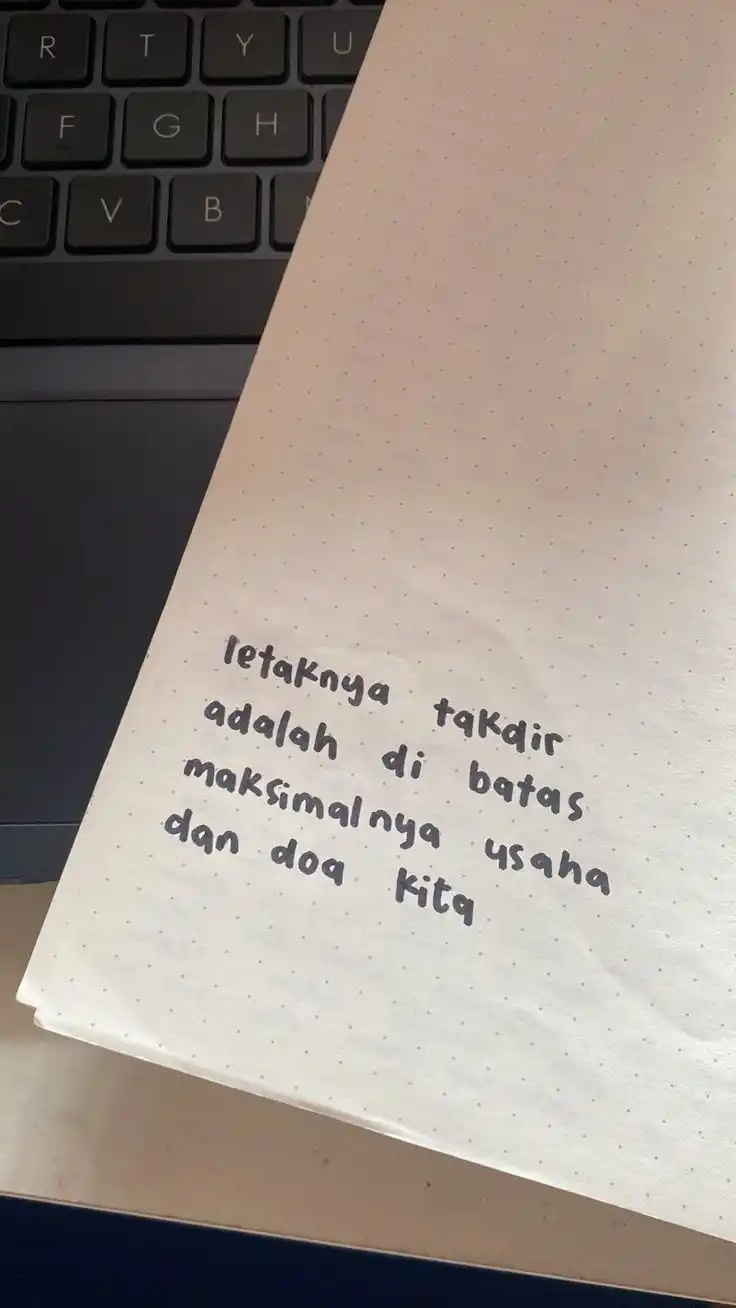 R T Y U
F G H
C V B
letaknya takdir
adalah di batas
maksimalnya usaha
dan doa kita